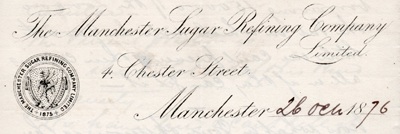 The Manchester Sugar Refining Company
Limited
4 Chester Street
Manchester 26 Oct 1876
THE MANCHESTER SUGAR REFINING COMPANY LIMITED
1875